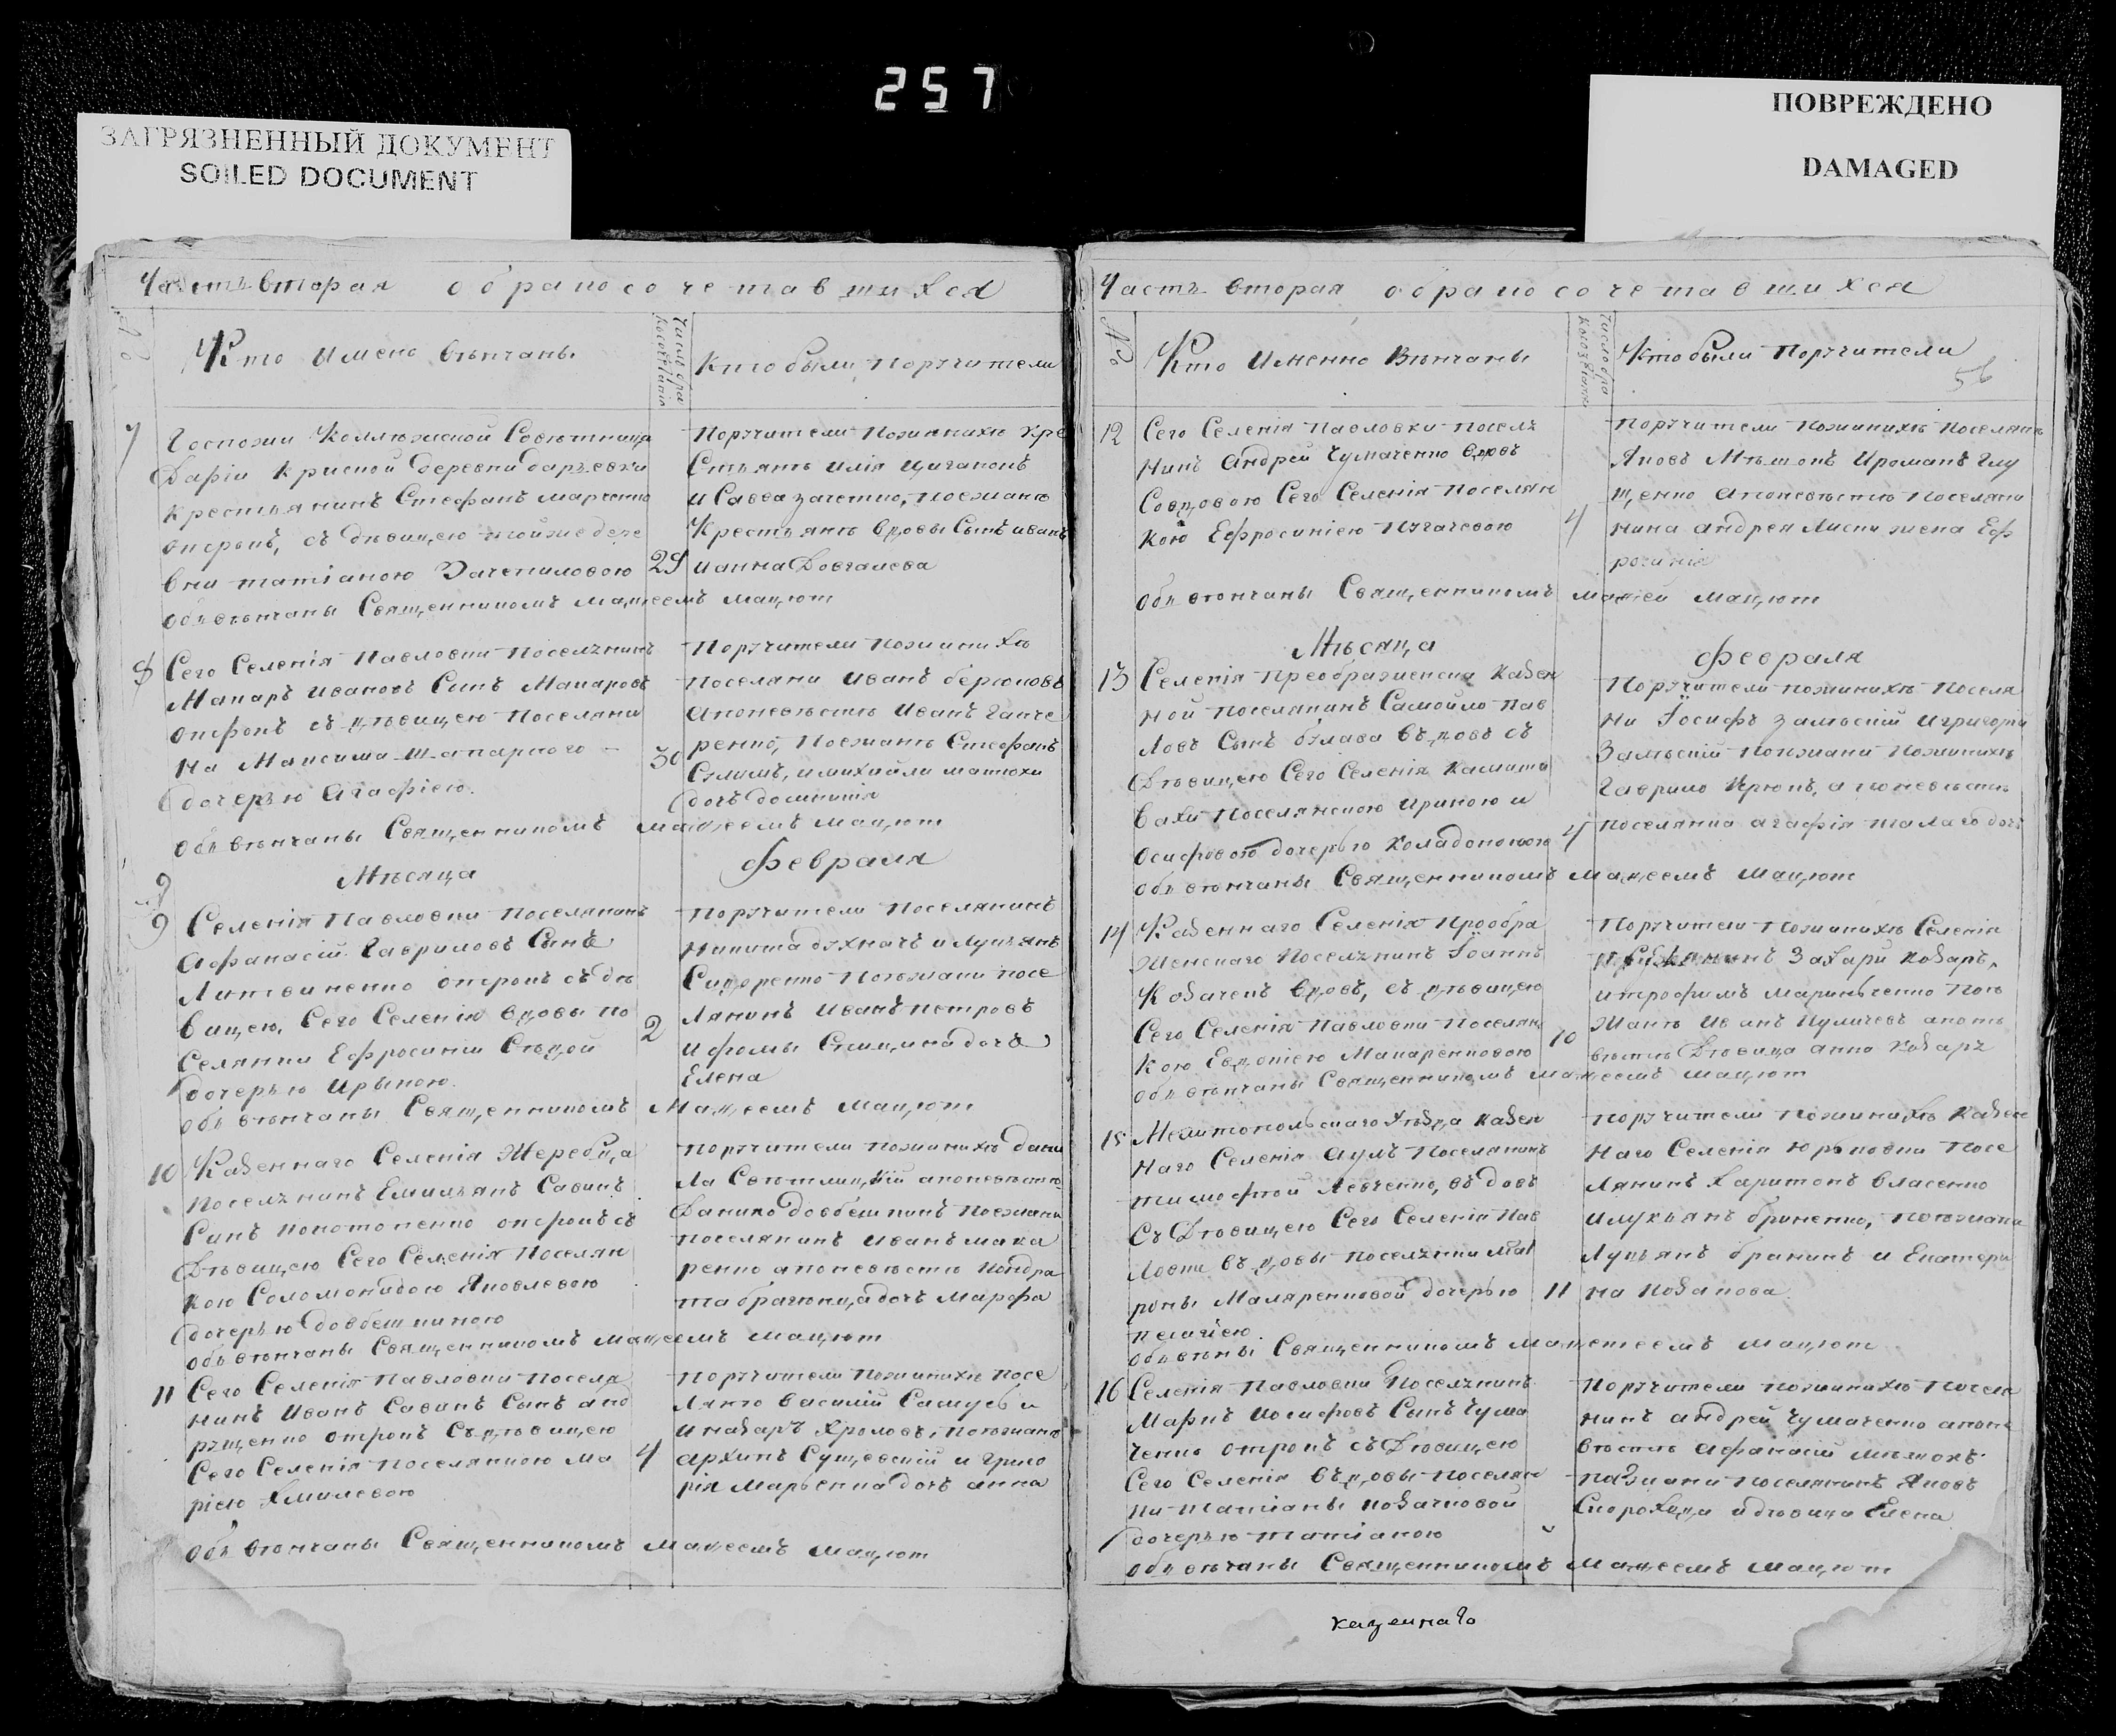 257
ЗАГРЯЗНЕННЫЙ ДОКУМЕНТ
SOILED DOCUMENT
ПОВРЕЖДЕНО
DAMAGED
Часть вторая о бракосочетавшихся
Кто имено вѣнчаны
Кто были Поручители
7
Госпожи Коллежской Совѣтницы
Даріи деревни
крестьянинъ Стефанъ Марченко
отрокъ, съ дѣвицею тойже дере
вни татіаною Зачепиловою
29
Обвѣнчаны Священникомъ Маѳеемъ Мацют
Поручители по женихѣ кре
стьянъ Илія Циганокъ
и Савва, поезжанъ
Крестьянъ вдовы Сынъ иванъ
и анна Довгалева
8
Сего Селенія Павловки Поселянинъ
Макаръ Ивановъ Синъ Макаровъ
отрокъ съ дѣвицею поселяни
на Максима Шапарного
дочерью Агафіею.
30
Обвѣнчаны Священникомъ Маѳеемъ Мацют
Поручители по женихѣ
поселяни Иванъ Берюковъ
а по невѣстѣ Иванъ Ганче
ренко, Поезжанъ Стефанъ
и михайли матюхи
дочь домникія
Мѣсяца Февраля
9
Селенія Павловки поселянинъ
Афанасій Гавриловъ Синъ
Литвиненко отрокъ съ дѣ
вицею, Сего Селенія вдовы по
селянки Ефросиніи Сѣдой
дочерью Ирыною.
2
Обвѣнчаны Священникомъ Маѳеемъ Мацют
Поручители поселянинъ
Никита духначъ и Лукъянъ
Сидоренко поезжани посе
лянинъ Иванъ петровъ
и фомы дочь
Елена
10
Казеннаго Селенія Жеребца
поселянинъ Емилъянъ Савинъ
Синъ отрокъ съ
Дѣвицею Сего Селенія Поселян
кою Соломонидою Яковлевою
дочерью довбешкиною
Обвѣнчаны Священникомъ Маѳеемъ Мацют
поручители по женихѣ дани
ла Свѣтлицкій а по невѣстѣ
Данило довбешкинъ поезжани
поселянинъ Иванъ мака
ренко а по невѣстѣ Кондра
та дочь Марфа
11
Сего Селенія Павловки поселя
нинъ Иванъ Савинъ Синъ анд
рущенко отрокъ съ дѣвицею
Сего Селенія поселянкою Ма
ріею Хмилевою
4
Обвѣнчаны Священникомъ Маѳеемъ Мацют
Поручители по женихѣ посе
лянъ Василій Самусь и
и назаръ Хроловъ, поезжанъ
архипъ Сущевскій и Григо
рія Марьенка дочь анна
Часть вторая о бракосочетавшихся
№
Кто Именно Вѣнчаны
Кто были Поручители
56
12
Сего Селенія Павловки поселя
нинъ Андрей Чумаченко вдовъ
Со вдовою Сего Селенія поселян
кою Ефросиніею Пугачевою
4
Обвѣнчаны Священникомъ Маѳеи Мацют
Поручители по женихѣ поселянъ
Яковъ Мѣшокъ и романъ Глу
щенко а по невѣстѣ поселяни
нина андрея жена Еф
росинія
Мѣсяца Февраля
13
Селенія Преображенска Казен
ной поселянинъ Самойло пав
ловъ Сынъ булава въдовъ съ
Дѣвицею Сего Селенія
поселянскою Ириною и
осифовою дочерью
4
Обвѣнчаны Священникомъ Маѳеемъ Мацют
Поручители по женихѣ поселя
ни Іосифъ Замѣскій и григорій
Замѣскій поезжани по женихѣ
Гаврило Крюкъ, а по невѣстѣ
поселянка агафія дочь
14
Казеннаго Селенія Прообра
женскаго Поселянинъ Іоаннъ
вдовъ, съ дѣвицею
Сего Селенія Павловки поселян
кою Евдокіею Макаренковою
10
Обвѣнчаны Священникомъ Маѳеемъ Мацют
Поручители по женихѣ Селенія
Захари Коваръ,
и трофимъ Мариньченко пое
жанъ Иванъ Куличевъ а по не
вѣстѣ Дѣвица анна
15
Мелитопольскаго уѣзда Казен
наго Селенія аулъ поселянинъ
тимофтой Левченко, въдовъ
Съ Дѣвицею Сего Селенія Пав
ловки въдовы поселянки мат
роны Маляренковой дочерью
пелагіею.
11
Священникомъ Мацют
Поручители по женихѣ Казен
наго Селенія Юрьковки посе
лянинъ Харитонъ Власенко
и лукъянъ бриненко, поезжани
Лукъянъ и Екатери
на Козакова
16
Селенія Павловки Поселянинъ
Маркъ иосифовъ Сынъ Чума
ченко отрокъ съ Дѣвицею
Сего Селенія въдовы поселян
ки татіаны Козачковой
дочерью татіаною
Обвѣнчаны Священникомъ Маѳеемъ Мацют
Поручители по женихѣ поселя
нинъ андрей Чумаченко а по не
вѣстѣ Афанасій мѣшокъ
поезжани поселянинъ Яковъ
Скороход и дѣвица Елена
казеннаго